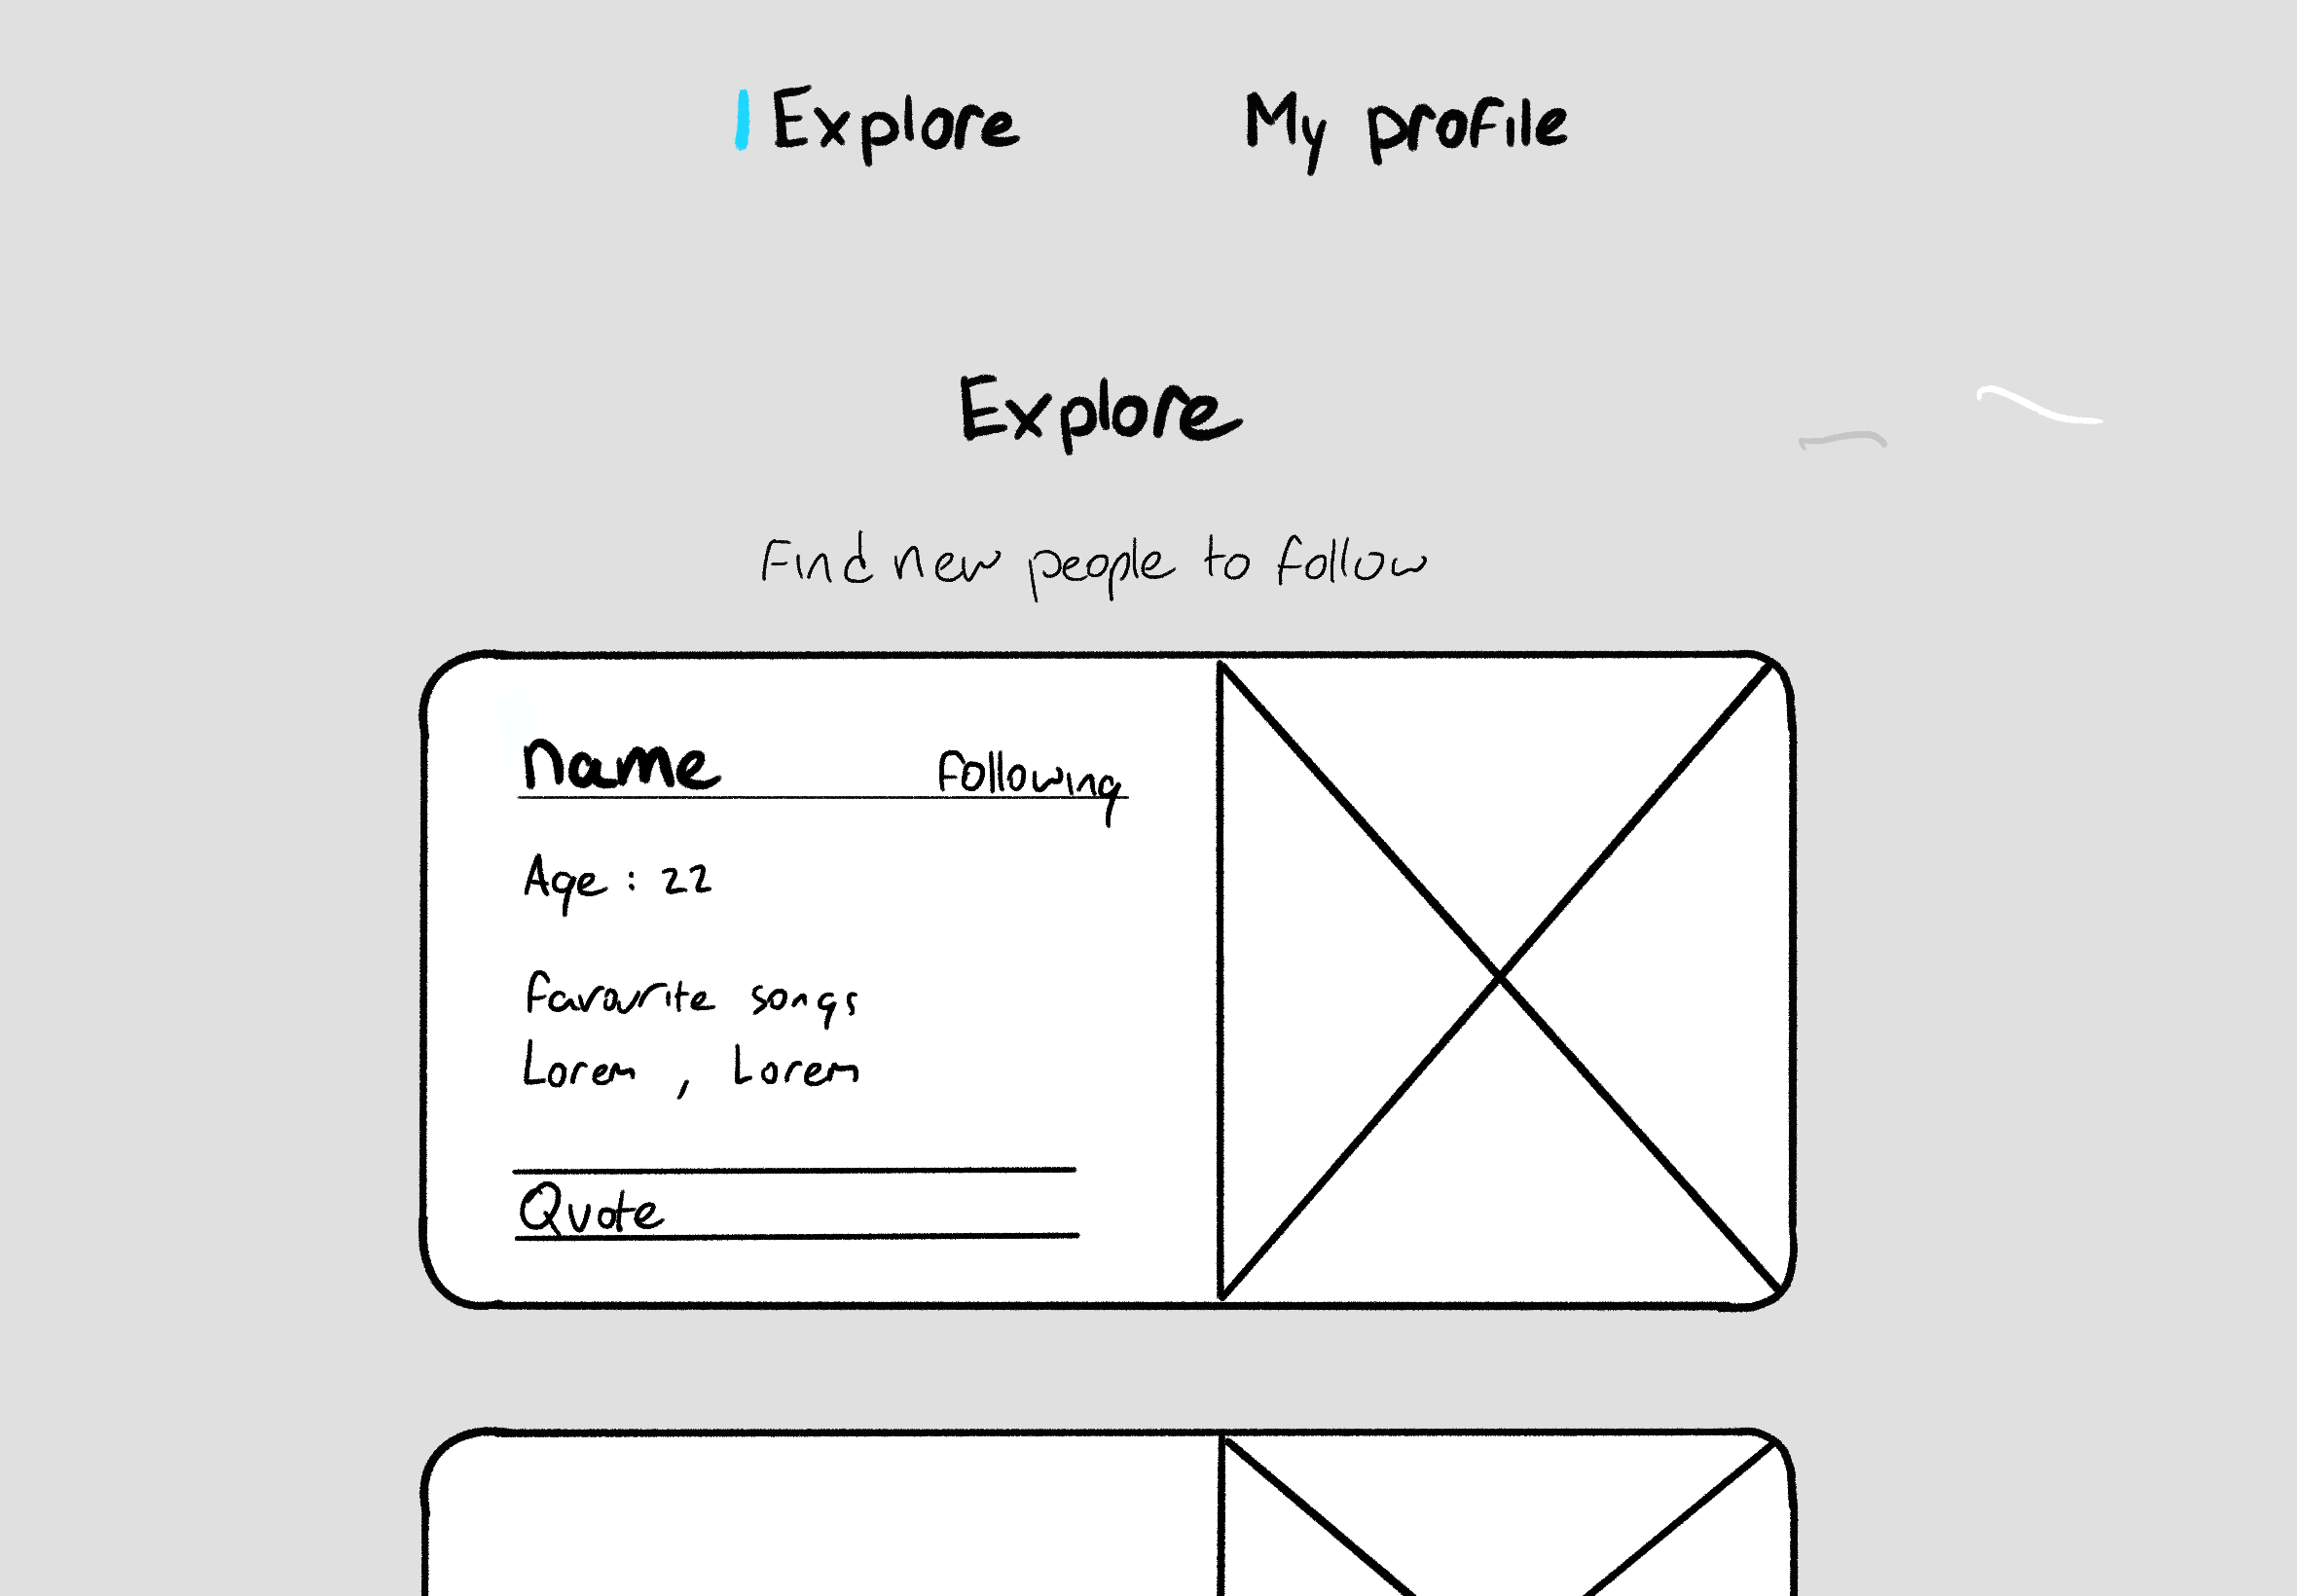 Explore My profile
Explore
Find new people to follow
Name Following
Age : 22
Favourite songs
Lorem , Lorem
Quote